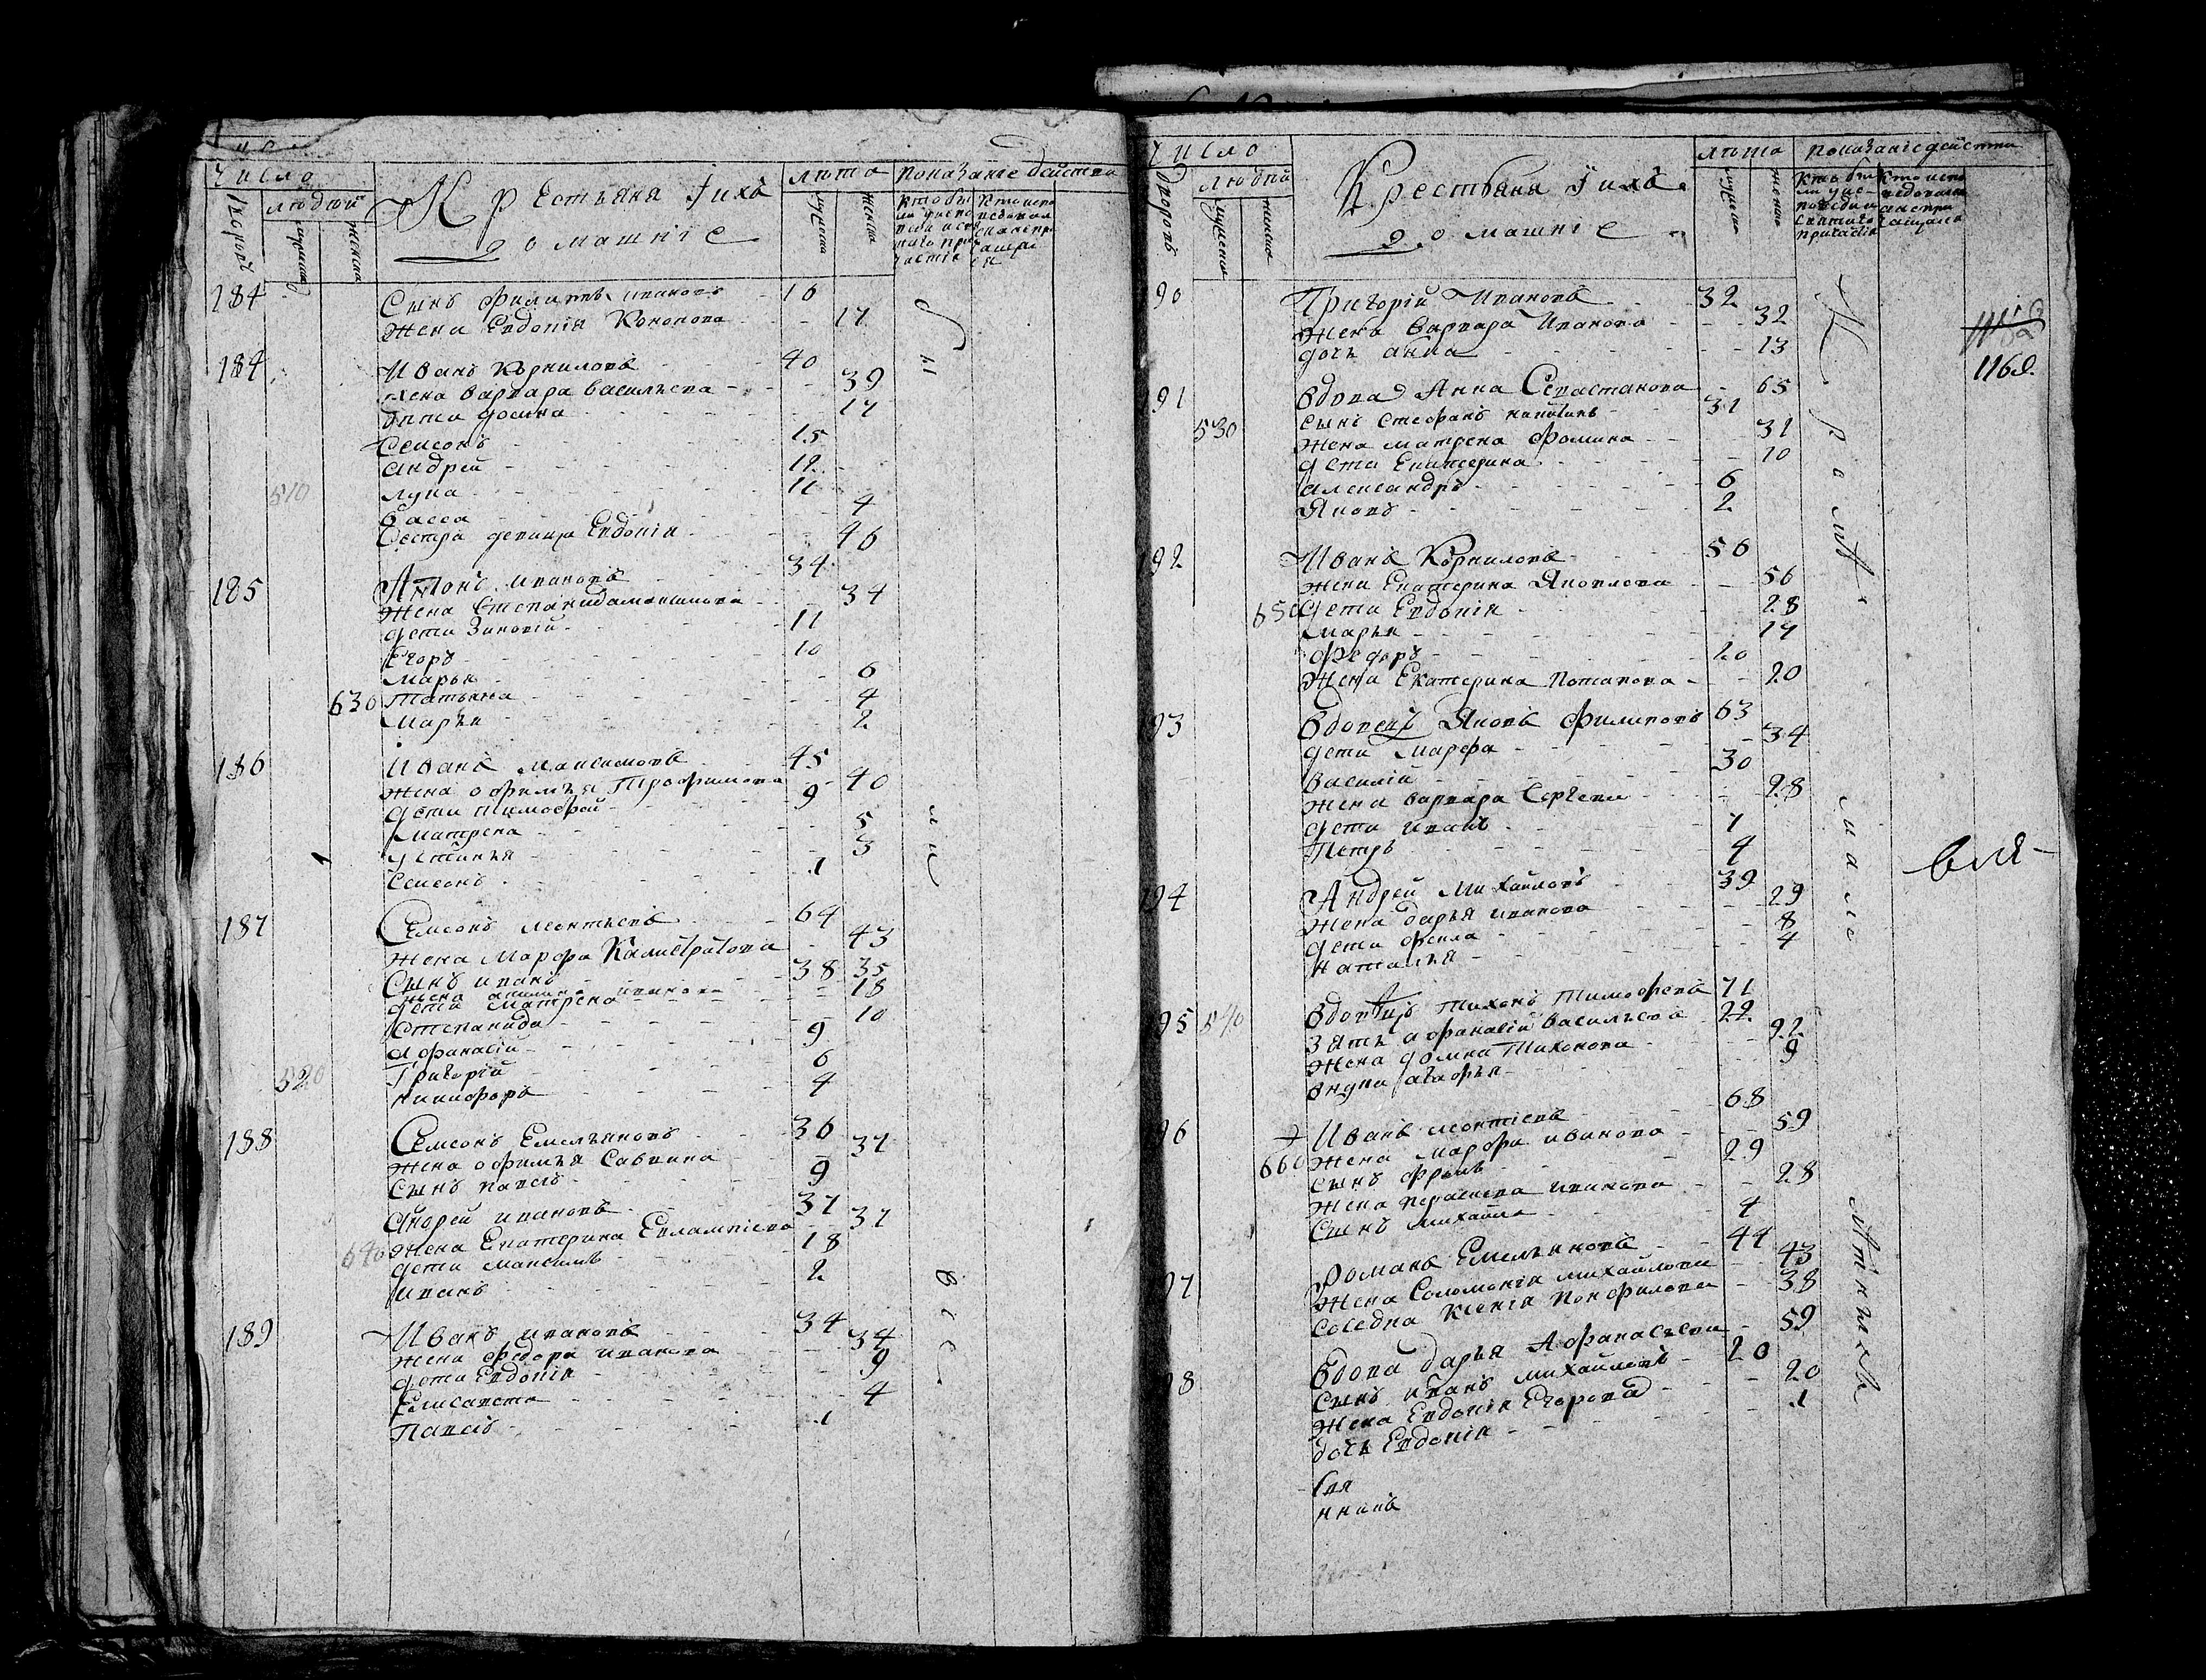 Число
людей
Дворовъ
мужеска
женска
Крестьяня Їихъ
домашніе
лѣта
мужеска
женска
Показаніе действа
184 Сынъ Филиппъ Ивановъ - 16
Жена Евдокія Кононова - - 17
184 Иванъ Корниловъ 40
жена Варвара Васильева - - 39
дѣти Домна - - 17
Семсонъ - - 15
Андрей - - 12
510 Лука - - 11
Васса - - 4
Сестра девица Евдокія - - 46
185 Антонъ Ивановъ 34
Жена Степанида Максимова - - 34
дети Зиновій - - 11
Егоръ - - 10
Марья - - 6
630 Татьяна - - 4
Марья - - 2
186 Иванъ Максимовъ 45
Жена Офимья Трофимова - 40
дети Тимофей - - 9
Матрена - - 5
Устинья - - 3
Семсонъ - - 1
187 Семсонъ Леонтьевъ 64
Жена Марфа Калистратова - 43
Сынъ Иванъ - - 38
Жена Акилина Иванова - - 35
дети Матрена - - 18
Степанида - - 10
Афанасій - - 9
520 Григорій - - 6
Никифоръ - - 4
188 Семсонъ Емельяновъ 36
Жена Офимья Савкина - 37
Сынъ Павелъ - - 9
Андрей Ивановъ - 37
640 Жена Екатерина Евлампіева - 37
дети Максимъ - - 18
Иванъ - - 2
189 Иванъ Ивановъ 34
Жена Федора Иванова - - 34
дети Евдокія - - 9
Елисавета - - 4
Павелъ - - 1
Число
людей
Дворовъ
мужеска
женска
Крестьяня Їихъ
домашніе
лѣта
мужеска
женска
Показаніе действа
90 Григорій Ивановъ 32
Жена Варвара Иванова - - 32
дочь Анна - - 13
116 д.
91 Вдова Анна Севастанова - 65
530 Сынъ Стефанъ - 31
Жена Матрена Фомина - - 31
дети Екатерина - - 10
Александръ - - 6
Яковъ - - 2
192 Иванъ Корниловъ 56
Жена Екатерина Яковлева - - 56
650 дети Евдокія - - 28
Марья - - 14
Федоръ - - 20
Жена Екатерина Потапова - - 20
93 Вдовецъ Яковъ Филиповъ 63
дети Марфа - - 34
Василій - - 30
Жена Варвара Сергеева - - 28
дети Иванъ - - 7
Петръ - - 4
94 Андрей Михайловъ 39
Жена Дарья Иванова - - 29
дети Фекла - - 8
Наталья - - 4
95 540 Вдовецъ Тихонъ Тимофеевъ 71
Зять Афанасій Васильевъ 22
Жена Домна Тихонова - - 22
Внука - - 9
96 Иванъ Леонтіевъ 68
660 Жена Марфа Иванова - - 59
Сынъ Фролъ - - 29
Жена Иванова - - 28
Сынъ Михайла - - 4
97 Романъ Емельяновъ 44
Жена Соломонія Михайлова - 43
Соседка Ксенія - 38
98 Вдова Дарья Афанасьева - 59
Сынъ Иванъ Михайловъ - 20
Жена Евдокія Егорова - - 20
дочь Евдокія - - 1
Свя
нникъ
Сіи
ли
все
Крамѣ
мале
лѣтныхъ